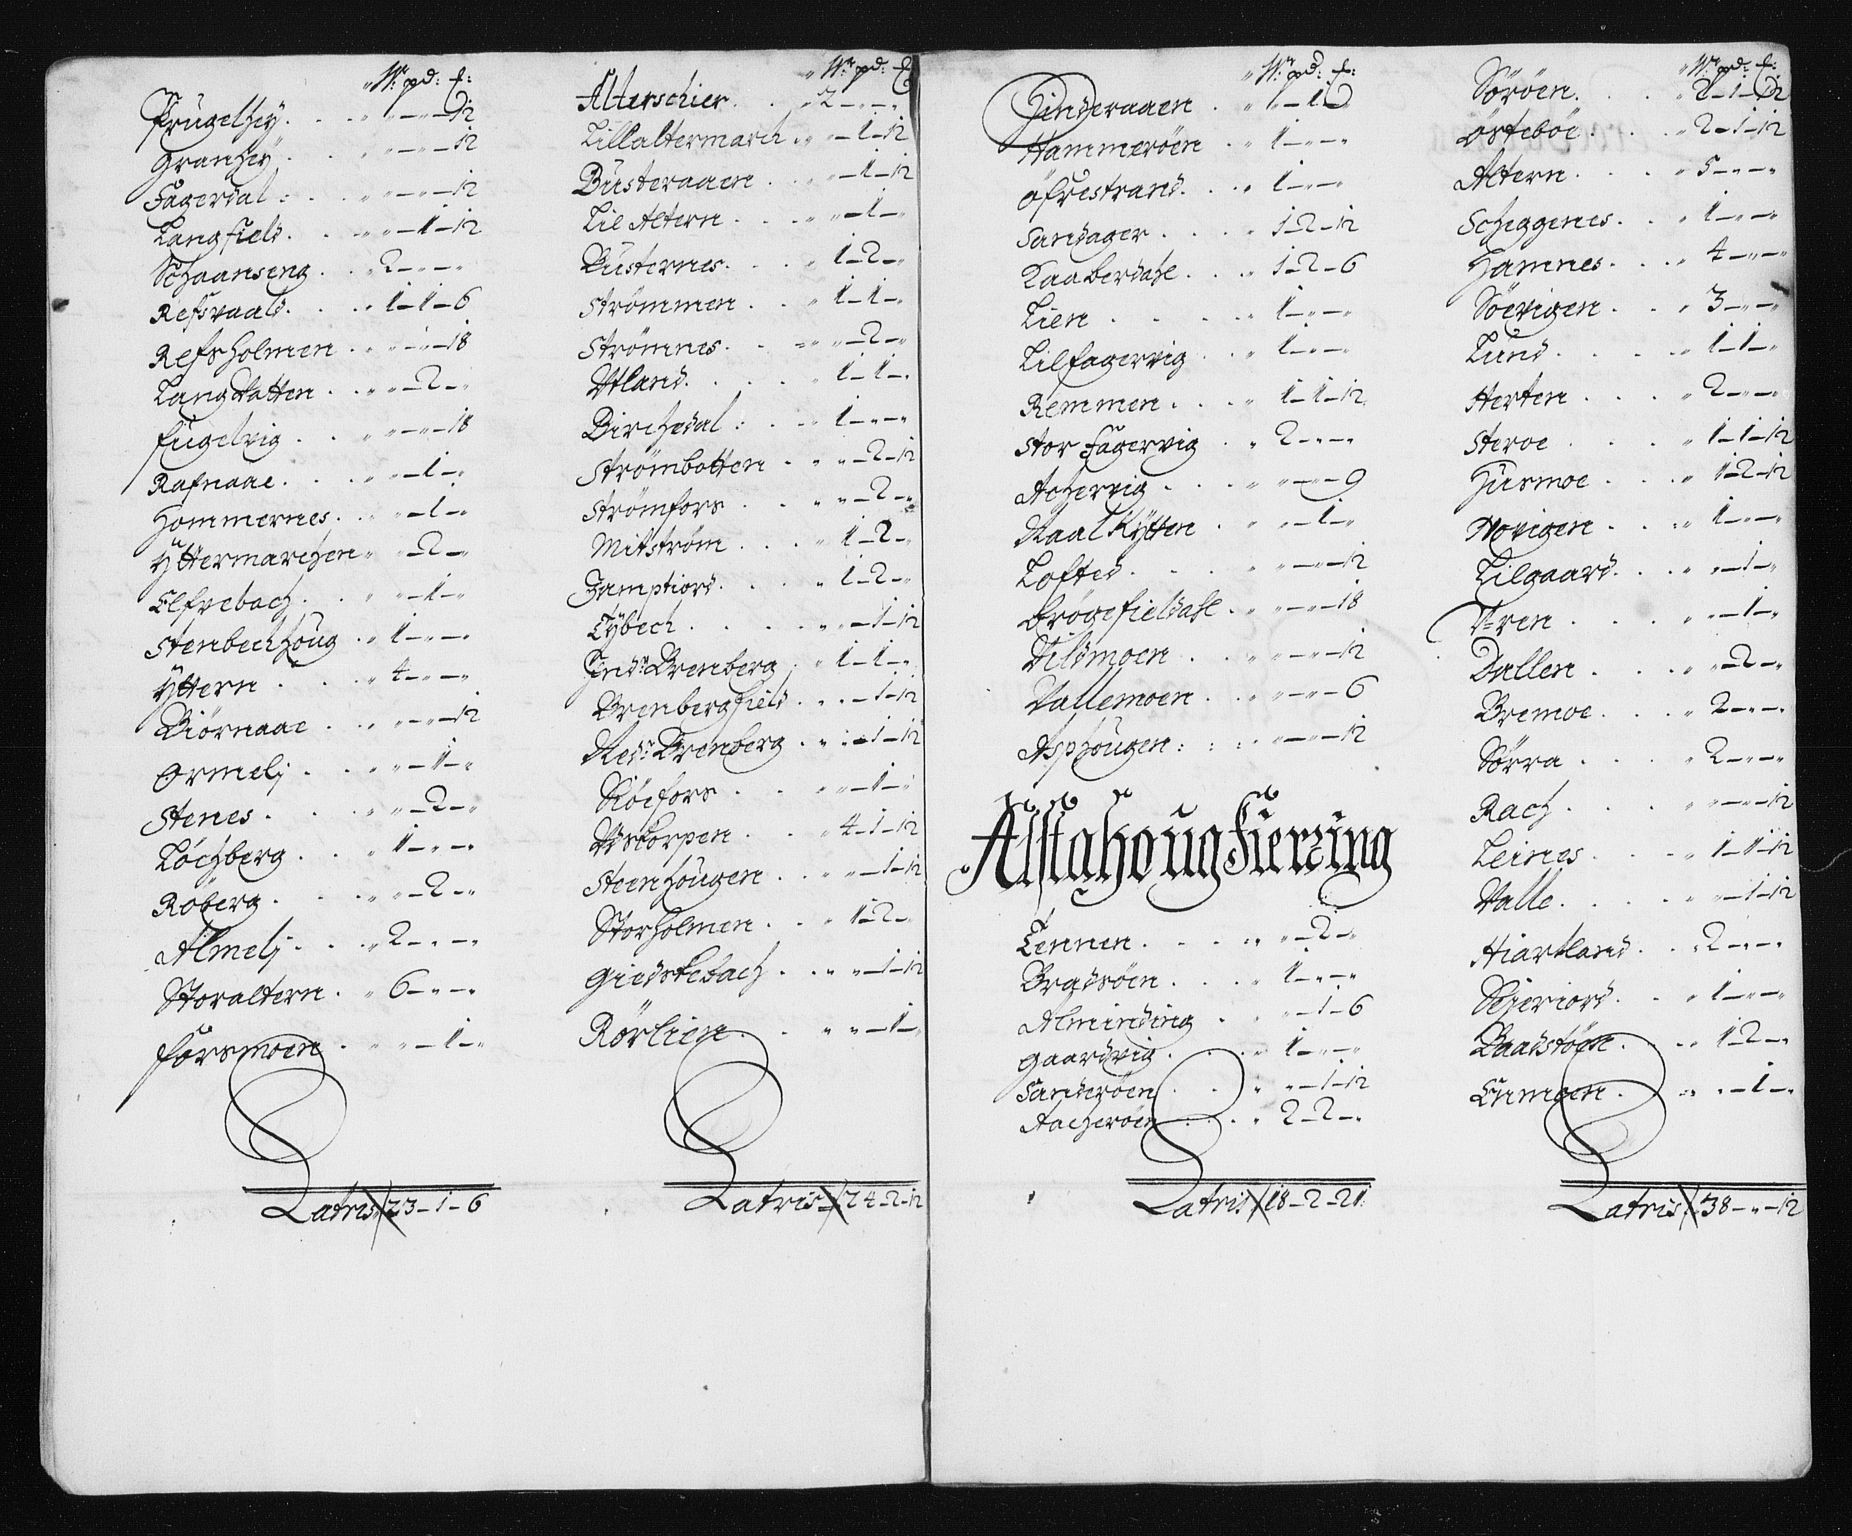 Wr: pd: £:
Krugelhey. . . „ „ – „ – 12
Granhey. . . „ „ – „ – 12
Fagerdal: . . „ „ – „ – 12
Langfield. . . „ „ – 1 – 12
Schaanseng. . . „ 2 – „ – „
Refsvaald. . . „ 1 – 1 – 6
Refsholmen . . „ „ – „ – 18
Langvatten . . „ „ – 2 – „
Fugelvig . . „ „ – „ – 18
Rafnaae. . . „ „ – 1 – „
Hommernes. . . „ „ – 1 – „
Yttermarchen „ „ – 2 – „
Elfvebach. . . „ „ – 1 – „
Stenbechhoug . „ 1 – „ – „
Yttern . . . „ 4 – „ – „
Biörnaae . . „ „ – „ – 12
Ormelj . . . „ „ – 1 – „
Stenes. . . . „ „ – 2 – „
Löchberg . . „ 1 – „ – „
Röberg . . . „ „ – 2 – „
Almelj. . . . „ 2 – „ – „
Storaltern. . „ 6 – „ – „
Forsmoen . . „ „ – 1 – „
Latris 23 – 1 – 6
Wr: pd: £
Alterschier. . . „ 2 – „ – „
Lillaltermarch „ „ – 1 – 12
Busteraaen . . „ „ – 1 – 12
Lil Altern . . . „ „ – 1 – „
Busternes. . . „ 1 – 2 – „
Strömmen . . „ 1 – 1 – „
Strömnes. . . „ „ – 2 – „
Utland. . . . „ 1 – 1 – „
Birchedal : . . „ 1 – „ – „
Strömbotten . „ „ – 2 – 12
Strömfors . . „ „ – 2 – „
Mitström . . . „ 1 – 2 – „
Jamptiord. . . „ 1 – 2 – „
Tybech . . . . „ „ – 1 – 12
Indr: Brenberg . „ 1 – 1 – „
Brenbergfield . „ „ – 1 – 12
Nedr: Brenberg . „ „ – 1 – 12
Siöefors . . „ „ – 1 – „
Utskorpen . . „ 4 – 1 – 12
Steenhougen . . „ „ – 1 – 12
Storholmen . . „ 1 – 2 – „
Giedskebach . . „ „ – 1 – 12
Rörlien . . „ „ – 1 – „
Latris 24 – 2 – 12
Wr: pd: £:
Hinderaaen . . „ „ – 1 – 6
Hammeröen . . „ 1 – „ – „
Öfrestrand. . . „ 1 – „ – „
Sandager . . . „ 1 – 2 – 12
Kaaberdahl . . „ 1 – 2 – 6
Lien . . . . „ 1 – „ – „
Lilfagervig . . „ 1 – „ – „
Remmen . . . „ 1 – 1 – 12
Stor Fagervig . „ 2 – „ – „
Achervig . . . „ „ – „ – 9
Naalkytten . „ „ – 1 – „
Lofted. . . . „ „ – „ – 12
Brögefieldahl . „ „ – „ – 18
Vildmoen . . „ „ – „ – 12
Vallemoen . . „ „ – „ – 6
Asphougen : : „ „ – „ – 12
Alstahoug Fierring
Tennen. . . . „ „ – 2 – „
Brydsöen. . . „ 1 – „ – „
Alminding . . „ „ – 1 – 6
Gaardvig . . . „ 1 – „ – „
Sanderöen . . „ „ – 1 – 12
Aacheröen . . „ 2 – 2 – „
Latris 18 – 2 – 21
Wr: pd: £:
Söröen. . . . „ 2 – 1 – 12
Örteböe . . . „ 2 – 1 – 12
Altern . . . . „ 5 – „ – „
Scheggenes. . „ 1 – „ – „
Hamnes. . . „ 4 – „ – „
Söevigen . . „ 3 – „ – „
Lund. . . . . „ 1 – 1 – „
Herten . . . . „ 2 – „ – „
Steroe . . . . „ 1 – 1 – 12
Husmoe . . . „ 1 – 2 – 12
Novigen . . . „ 1 – „ – „
Lilgaard. . . „ „ – 1 – „
Uren . . . . „ „ – 1 – „
Dallen . . . „ „ – 2 – „
Bremoe. . . . „ 2 – „ – „
Sörra . . . . „ 2 – „ – „
Rach . . . . „ „ – „ – 12
Leines . . . „ 1 – 1 – 12
Valle. . . . . „ „ – 1 – 12
Hiartland. . . „ 2 – „ – „
Skieriord. . . „ 1 – „ – „
Baadstöen . . „ 1 – 2 – „
Enmoen . . „ „ – 1 – „
Latris 38 – „ – 12